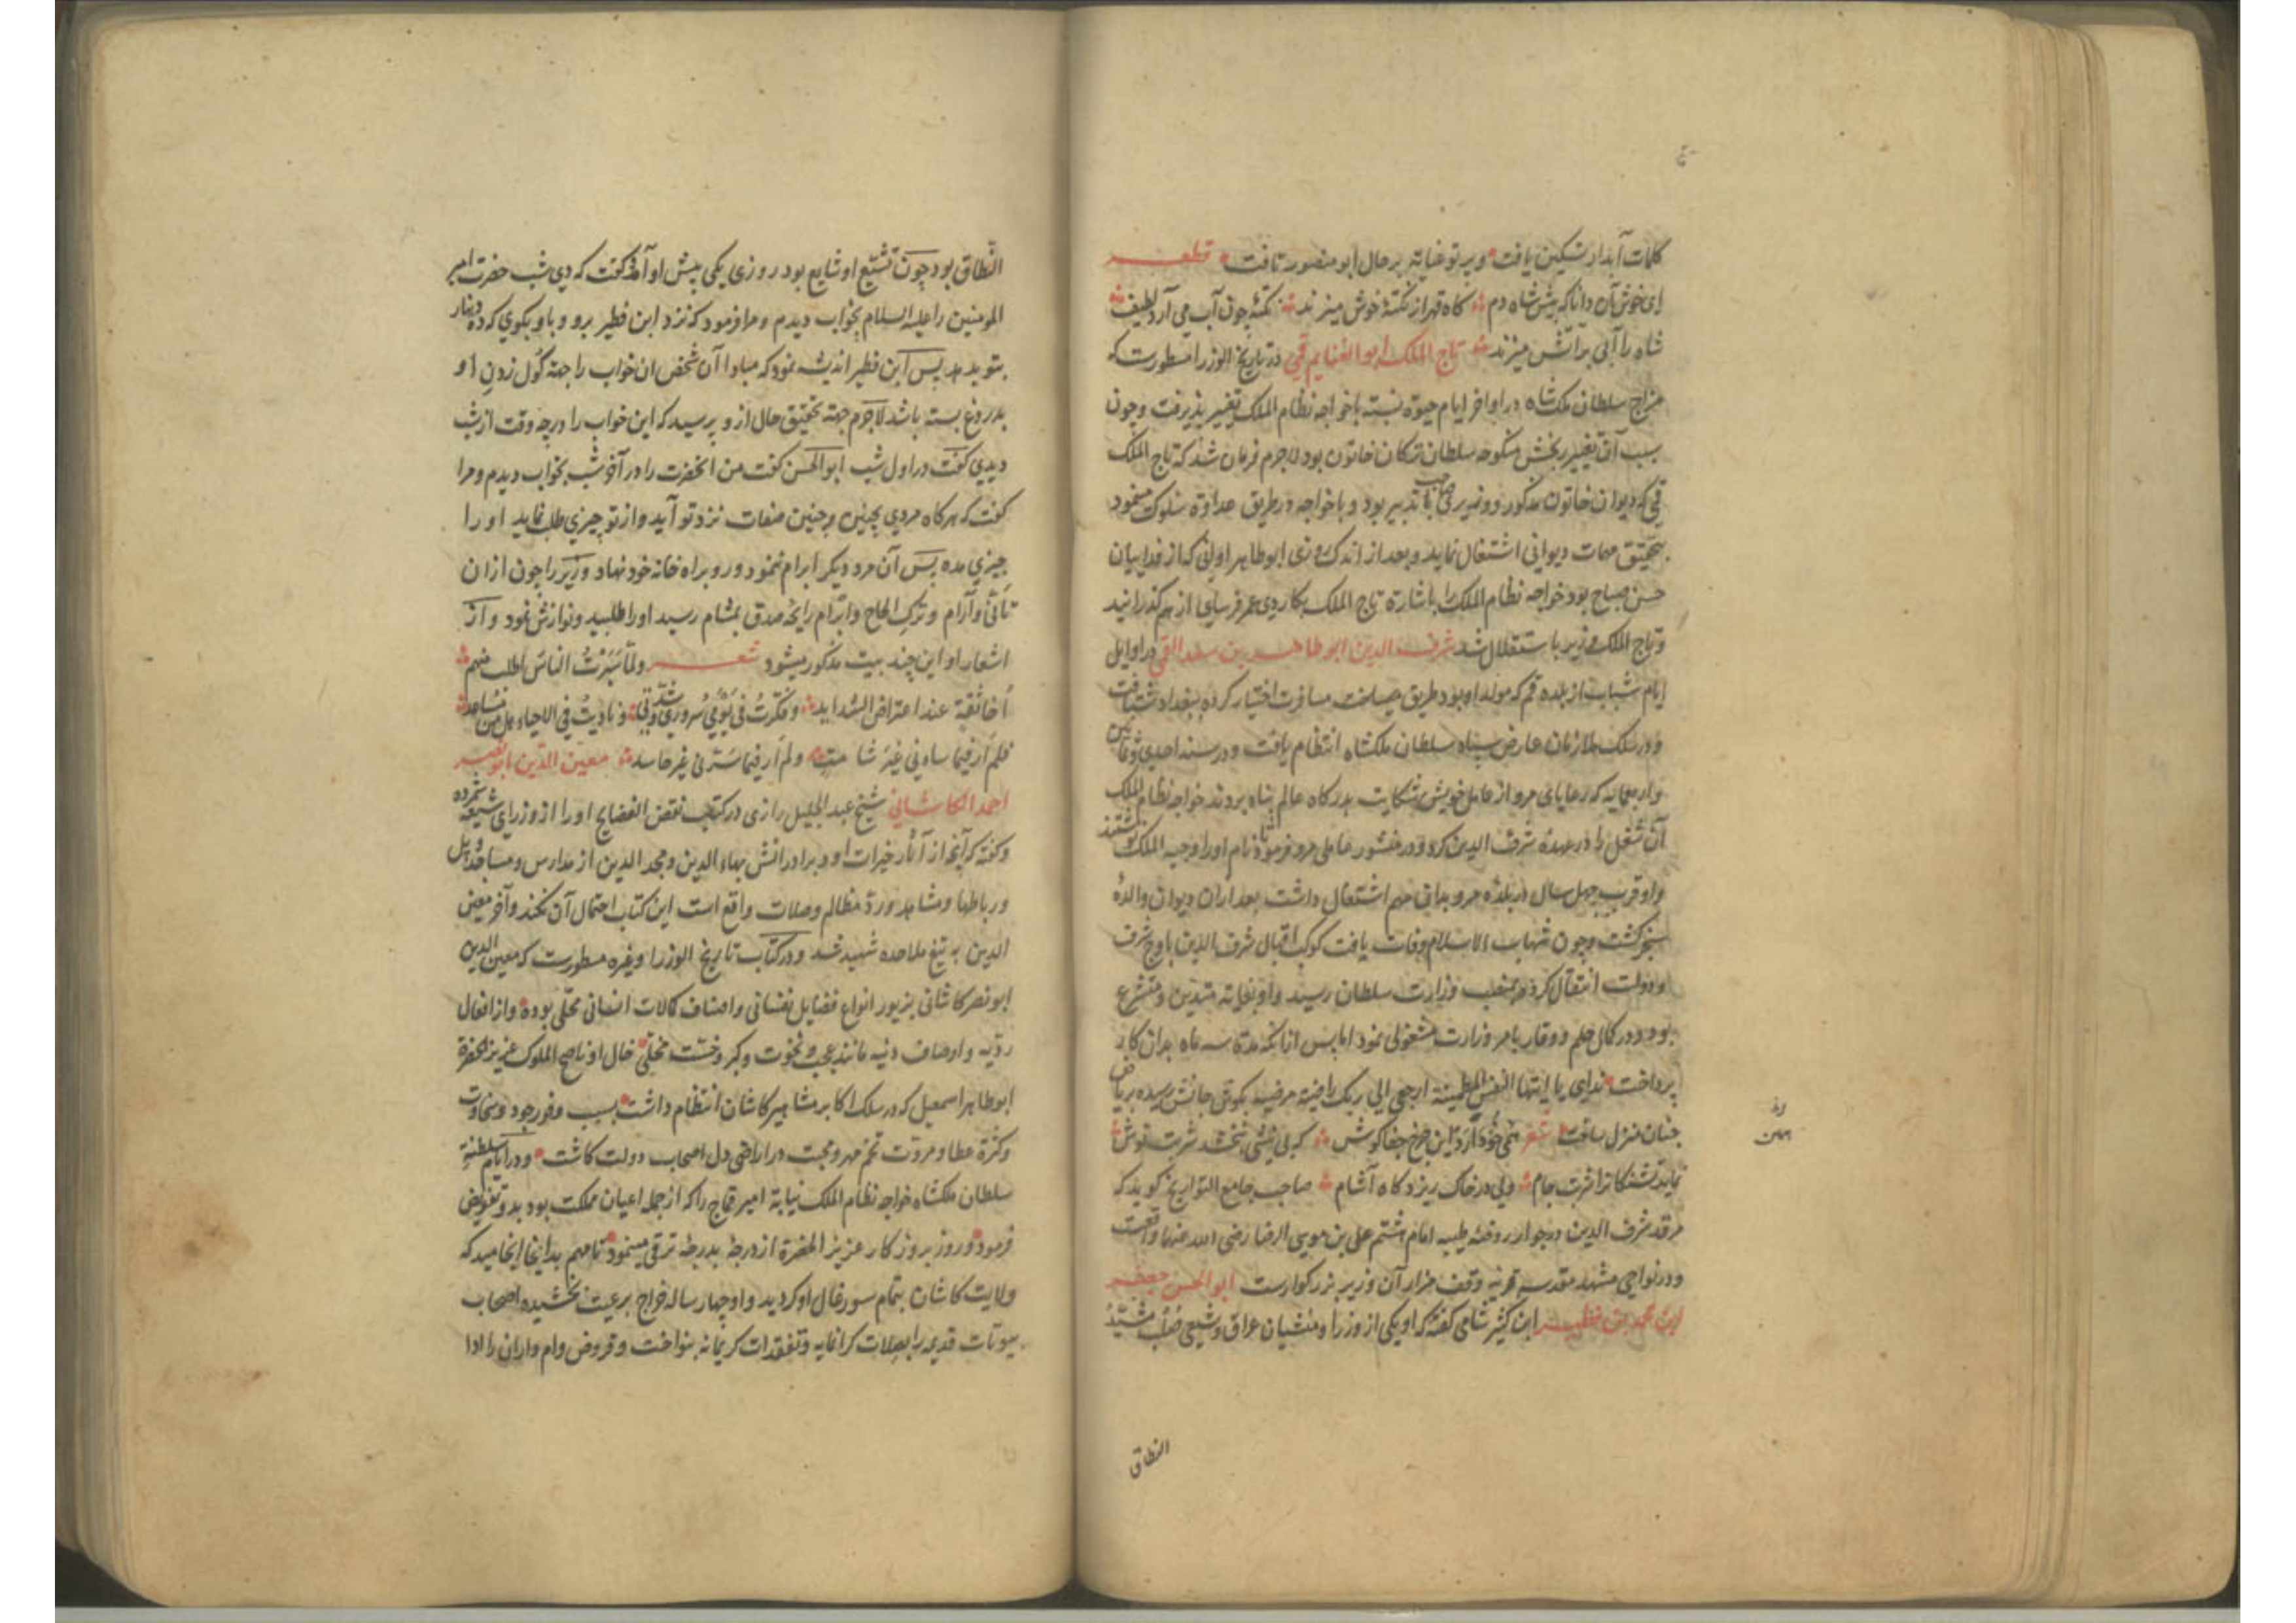 کلمات آبدار تسکین یافت و پرتو عنایتد بر حال ابو منصور تافت قطعه
ای خوش آن دانا که پیش شاه دم کاه قهر از نکتهٔ خوش میزند نکتهٔ چون آب می آرد لطیف
شاه را آبی بر آتش میزند تاج الملک ابو الغنایم قمی در تاریخ الوزرا مسطورست که
مزاج سلطان ملکشاه در اواخر ایام حیوة نسبت باخواجه نظام الملک تغییر پذیرفت و چون
سبب آن تغییر رنجش منکوحه سلطان ترکان خاتون بود لاجرم فرمان شد که تاج الملک
قمی که دیوان خاتون مذکور و وزیر صاحب تدبیر بود و با خواجه در طریق عداوة سلوک مینمود
بتحقیق مهمات دیوانی اشتغال نماید و بعد از اندک روزی ابو طاهر اوانی که از فداییان
حسن صباح بود خواجه نظام الملک را باشارة تاج الملک بکاردی عمر فرسای از هم گذرانید
و تاج الملک وزیر باستقلال شد شرف الدین ابو طاهر بن سعد القمی در اوایل
ایام شباب از بلده قم که مولد او بود طریق مسافرت اختیار کرده ببغداد شتافت
و در سلک ملازمان عارض سپاه سلطان ملکشاه انتظام یافت و در سنه احدی و ثمانین
و اربعمایه که رعایای مرو از عامل خویش شکایت بدرکاه عالم پناه بردند خواجه نظام الملک
آن شغل را در عهدهٔ شرف الدین کرد و در منشور عاملی مرو فرمود تا نام او را وجیه الملک نوشتند
و او قریب چهل سال در بلدهٔ مرو بدان مهم اشتغال داشت بعد از ان دیوان والدهٔ
سنجر کشت و چون شهاب الاسلام وفات یافت کوکب اقبال شرف الدین باوج شرف
و دولت انتقال کرده بمنصب وزارت سلطان رسید و او بغایة متدین و متشرع
بود و در کمال حلم و وقار بامر وزارت مشغولی نمود اما پس از انکه مدة سه ماه بدان کار
پرداخت ندای یا ایتها النفس المطمئنة ارجعی الی ربک راضیة مرضیه بکوش جانش رسیده بریاض
جنان منزل ساخت شعر این چرخ جفا کوش که بی نیشی نبخشد شربت نوش
نماید تشنگانرا شربت جام ولی در خاک ریزد کاه آشام صاحب جامع التواریخ کوید که
مرقد شرف الدین در جوار روضه طیبه امام هشتم علی بن موسی الرضا رضی الله عنهما واقعست
و در نواحی مشهد مقدسه قریه وقف مزار آن وزیر بزرکوارست ابو الحسن جعفر
ابن محمد بن فطیر ابن کثیر شامی کفته که او یکی از وزرا و منشیان عراق و شیعی صلب مشیّد
النطاق
النّطاق بود چون تشیّع او شایع بود روزی یکی پیش او آمد کفت که دی شب حضرت امیر
المومنین را علیه السلام بخواب دیدم و مرا فرمود که نزد ابن فطیر برو و باو بکوی که ده دینار
بتو بدهد پس ابن فطیر اندیشه نمود که مبادا آن شخص ان خواب را جهة کول زدن او
بدروغ بسته باشد لاجرم جهة تحقیق حال از و پرسید که این خواب را در چه وقت از شب
دیدی کفت در اول شب ابو الحسن کفت من انحضرت را در آخر شب بخواب دیدم و مرا
کفت که هرکاه مردی بچنین و چنین صفات نزد تو آید و از تو چیزی طلب نماید او را
چیزی مده پس آن مرد دیکر ابرام ننمود و رو براه خانه خود نهاد وزیر را چون از ان
تأنّی و آرام و ترک الحاح و ابرام رایحه صدق بمشام رسید او را طلبید و نوازش نمود و از
اشعار او این چند بیت مذکور میشود شعر ولمّا سَبَرْتُ الناسَ اطلب منهم
اخا ثقة عند اعتراض الشداید وفکرتُ فی یومَی سروری و شدتی ونادیتُ فی الاحیاء هل من مساعد
فلم ار فیما ساءنی غیرَ شامت ولم ار فیما سرّنی غیر حاسد معین الدّین ابو نصر
احمد الکاشانی شیخ عبد الجلیل رازی در کتاب نقض الفضایح او را از وزرای شیعه شمرده
و کفته که آنچه از آثار خیرات او و برادرانش بهاء الدین و مجد الدین از مدارس و مساجد و پل
و رباطها و مشاهد و ردّ مظالم و صلات واقع است این کتاب احتمال آن نکند و آخر معین
الدین به تیغ ملاحده شهید شد و در کتاب تاریخ الوزرا و غیره مسطورست که معین الدین
ابو نصر کاشانی بزیور انواع فضایل نفسانی و اصناف کمالات انسانی محلّی بوده و از افعال
ردّیه و اوصاف دنیه مانند عجب و نخوت و کبر و خست متخلّی خال او ناصح الملوک عزیز الحضرة
ابو طاهر اسمعیل که در سلک اکابر مشاهیر کاشان انتظام داشت بسبب وفور جود و سخاوت
و کثرة عطا و مروّت تخم مهر و محبت در اراضی دل اصحاب دولت کاشت و در ایام سلطنة
سلطان ملکشاه خواجه نظام الملک نیابة امیر قماج را که از جمله اعیان مملکت بود بدو تفویض
فرمود و روز بروز کار عزیز الحضرة از درجهٔ بدرجهٔ ترقی مینمود تا مهم بدانجا انجامید که
ولایت کاشان بتمام سورغال او کردید و او چهار ساله خراج برعیت بخشیده اصحاب
بیوتات قدیمه را بصلات کرانمایه و تفقدات کریمانه بنواخت و قروض وام داران را ادا